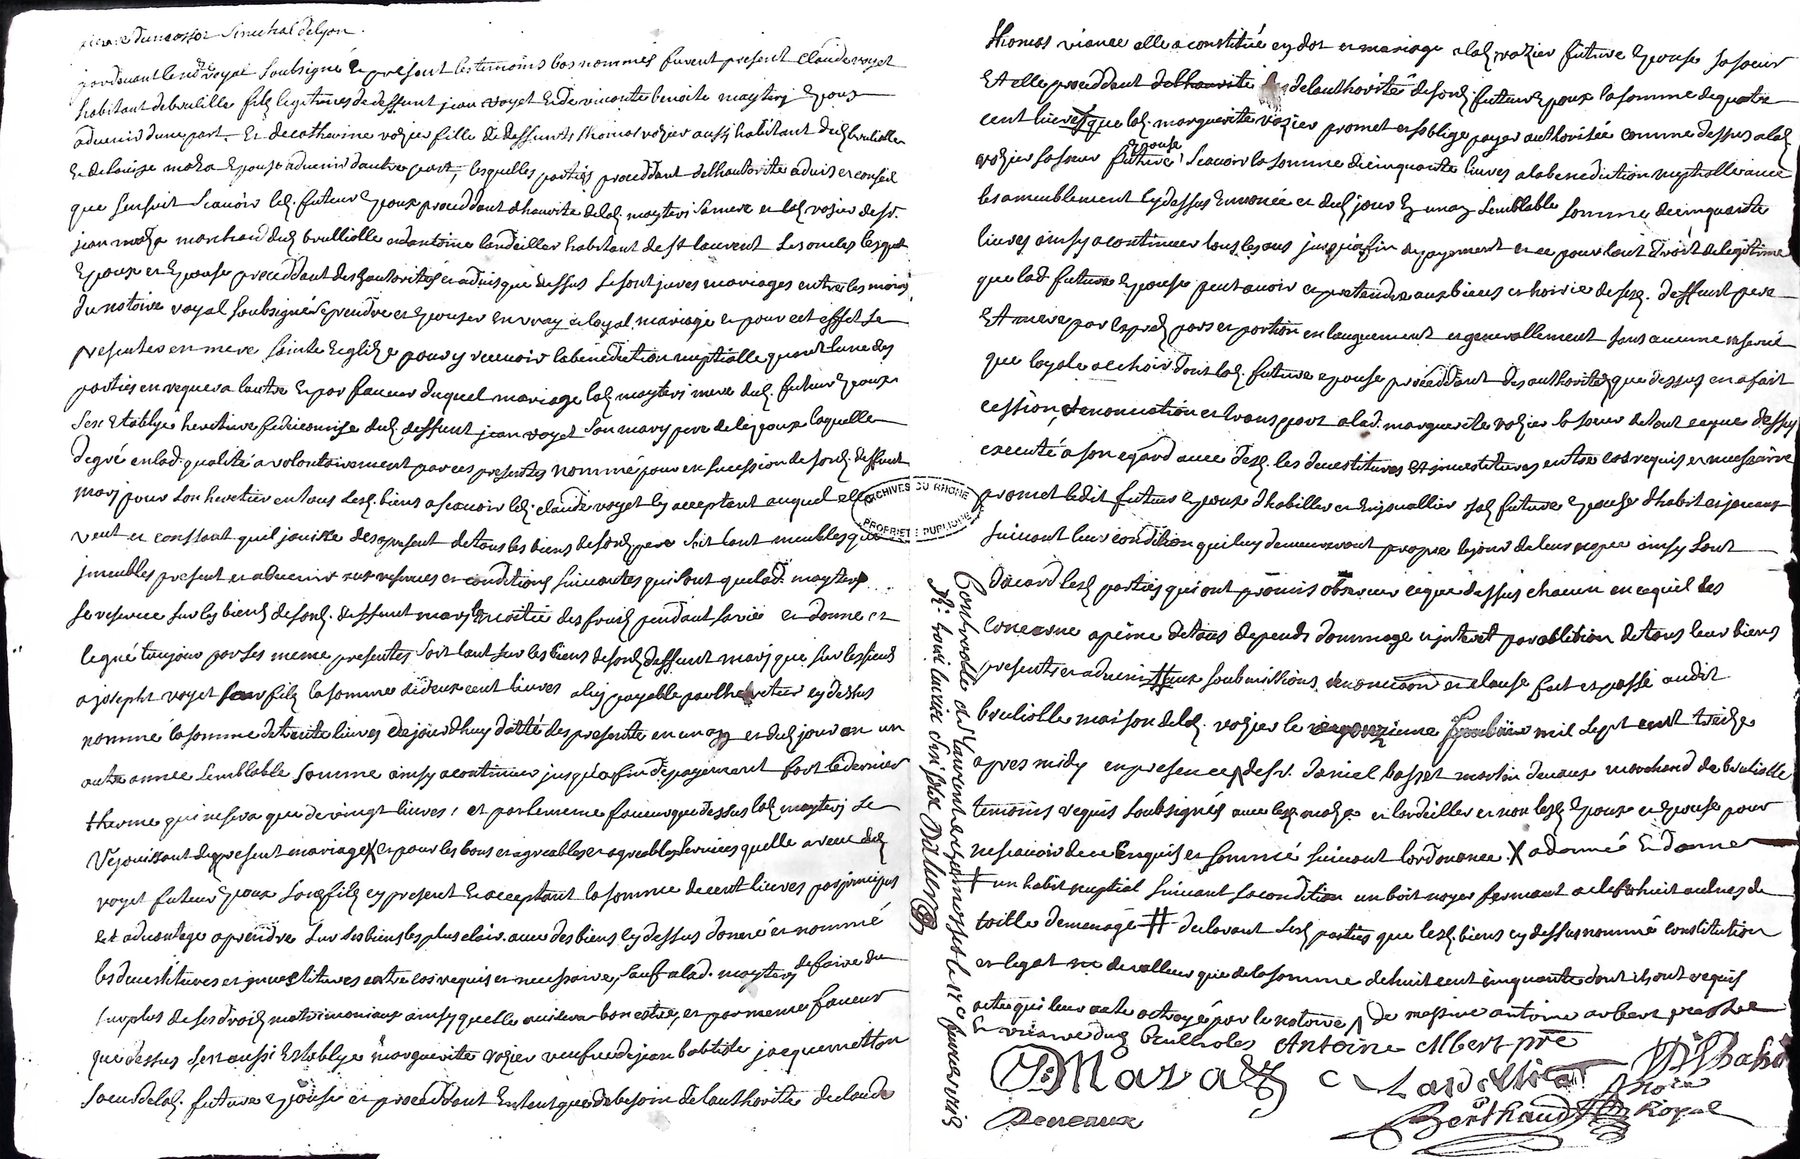 pardevant le nore royal soubsigné & présent les tesmoins bas nommés furent present claude voyet
habitant de brulliolle filz legitimes de deffunt jean voyet & de vivante benoite mayterj Epoux
advenir d'une part. Et de catherine rozier fille de deffunts thomas rozier aussj habitant dudj brulliolle
& de louise maza Epouse advenir d'autre part, lesquelles parties proceddant de lhautorité advis et conseil
que sensuit scavoir ledj futeur Epoux proceddant dhautrité de ladj mayterj sa mere et ladj rozier de sr.
jean maza marchand dudj brulliolle et dantoine lardeillier habitant de st laurent ses oncles lesquels
Epoux et Epouse proceddant des hautorités et advis que dessus se sont jurés mariages entre les mains
du notaire royal soubsigné se prendre et Epouser en vray et loyal mariage et pour cet effet se
presenter en mere sainte Eeglize pour y recevoir la benediction nuptialle quand l'une des
parties en requera lautre & par faveur duquel mariage ladj mayterj mere dudj. futeur Epoux
sere Etablye heretiere fideicomise dudj deffunt jean voyet son mary pere de lepoux laquelle
de gré en lad. qualité a volontairement par ces presentes nommé pour en sucession de sondj deffunt
marj pour son heretier en tous sesdj biens a scavoir ledj claude voyet cy acceptant auquel elle
veut et consent quil jouisse des apresent de tous les biens de sondj pere soit tant meubles que
jmeubles present et advenir aux reserves et conditions suivantes qui sont que lad. mayterj
se reserve sur les biens de sondj. deffunt mary la moitié des fruidj pendant sa vie et donne et
legué toujour par ses meme presentes soit tant sur les biens de sondj deffunt marj que sur les siens
a josepht voyet son filz la somme de deux cent livres a luy payable par lheretier cy dessus
nommé la somme de trante livres de jourdhuy datté des presente en un an et dudj jour en un
autre annee semblable somme ainsy a continuer jusqu'a fin de payement fors le dernier
therme qui ne sera que de vingt livres, et par le meme faveur que dessus ladj mayterj se
Rejouissant du present mariage et pour les bons et agreables et agreables services quelle a receu dudj
voyet futeur Epoux son filz cy present & acceptant la somme de cent livres par principus
et advantage a prendre sur ses biens les plus clair. avec des biens cy dessus donné et nommé
les devestitures et jnvestitures entre cas requis et necessaire, sauf a lad. mayterj de faire du
surplus de ses droidj matrimoniaux ainsy quelle avisera bon estre, et par meme faveur
que dessus sert aussi Establye marguerite rozier veufve de jean baptiste jacquemetton
soeur de ladj. future epouse et proceddant Entant que de besoin de lauthorité de claude
thomas vianee elle a constitué en dot et mariage a ladj rozier future Epouse sa soeur
Et elle proceddant de lauthorité de sondj futeur Epoux la somme de quatre
cent livres que ladj. marguerite rozier promet et soblige payer authorisée comme dessus a ladj
rozier sa soeur future epouse scavoir la somme de cinquante livres a la benediction nuptialle avec
les ameublement cy dessus Enoncée et dudj jour En un an semblable somme de cinquante
livres ainsy a continuer tous les ans jusqu'a fin de payement et ce pour tout droit de legitime
que lad. future Epouse peut avoir et pretendre aux biens et hoirie de sesdj. deffunt pere
Et mere par Exprés pars et portion en laugment et generallement sans aucune reserve
que loyale echoir dont ladj. future epouse proceddant des authorités que dessus en a fait
cession, renonciation et transport a lad. marguerite rozier sa soeur de tout ce que dessus
executé a son egard avec desdj. les devestitures & investitures entre cas requis et necessaire
promet ledit futeur epoux dhabiller et Enjouallier sadj future Epouse dhabit et joyaux
suivant leur condition qui luy demeureront propre le jour de leur nopce ainsy sont
dacord lesdj parties qui ont promis observer ce que dessus chacun en ce quil les
concerne a peine de tous depends dommage et interet par obligation de tous leur biens
presents et advenir # aux soubmissions renonciation et clause fait et passé audit
brulliolle maison de ladj. rozier le onzieme febvrier mil sept cent treize
apres midy en presence de sr. daniel basset martin deneaux marchand de brulliolle
temoins requis soubsignés avec lesdj maza et lardeillier et non lesdj Epoux et Epouse pour
ne scavoir de ce Enquis et sommé suivant lordonance. X a donné Et donne
‡ un habit nuptial suivant sa condition un boit noyer fermant a clef & huit aulnes de
toille de menage # declarant lesdj parties que lesdj. biens cy dessus nommé constitution
et legat ne de valleur que de la somme de huit cent cinquante dont ils ont requis
acte qui leur a este octroyé par le notaire / de messire antoine arbert prestre
& vicaire dudj brullioles Antoine Albert pre
Maza
Lardellier
Deneaux
Berthaud nore Royal
Controollé a St laurent de chamosset le 17e fevrier 1713
ARCHIVES DU RHONE
PROPRIETE PUBLIQUE